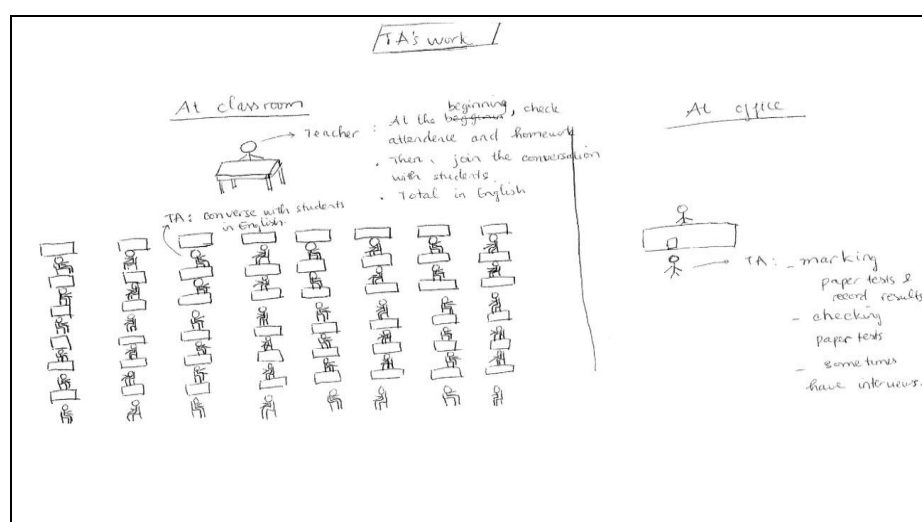 TA's work
At classroom
Teacher : At the beggining beginning, check
attendence and homework
. Then, join the conversation
with students.
. Total in English
TA: converse with students
in English.
At office
TA: - marking
paper tests &
record results
- checking
paper tests
- sometimes
have interviews.